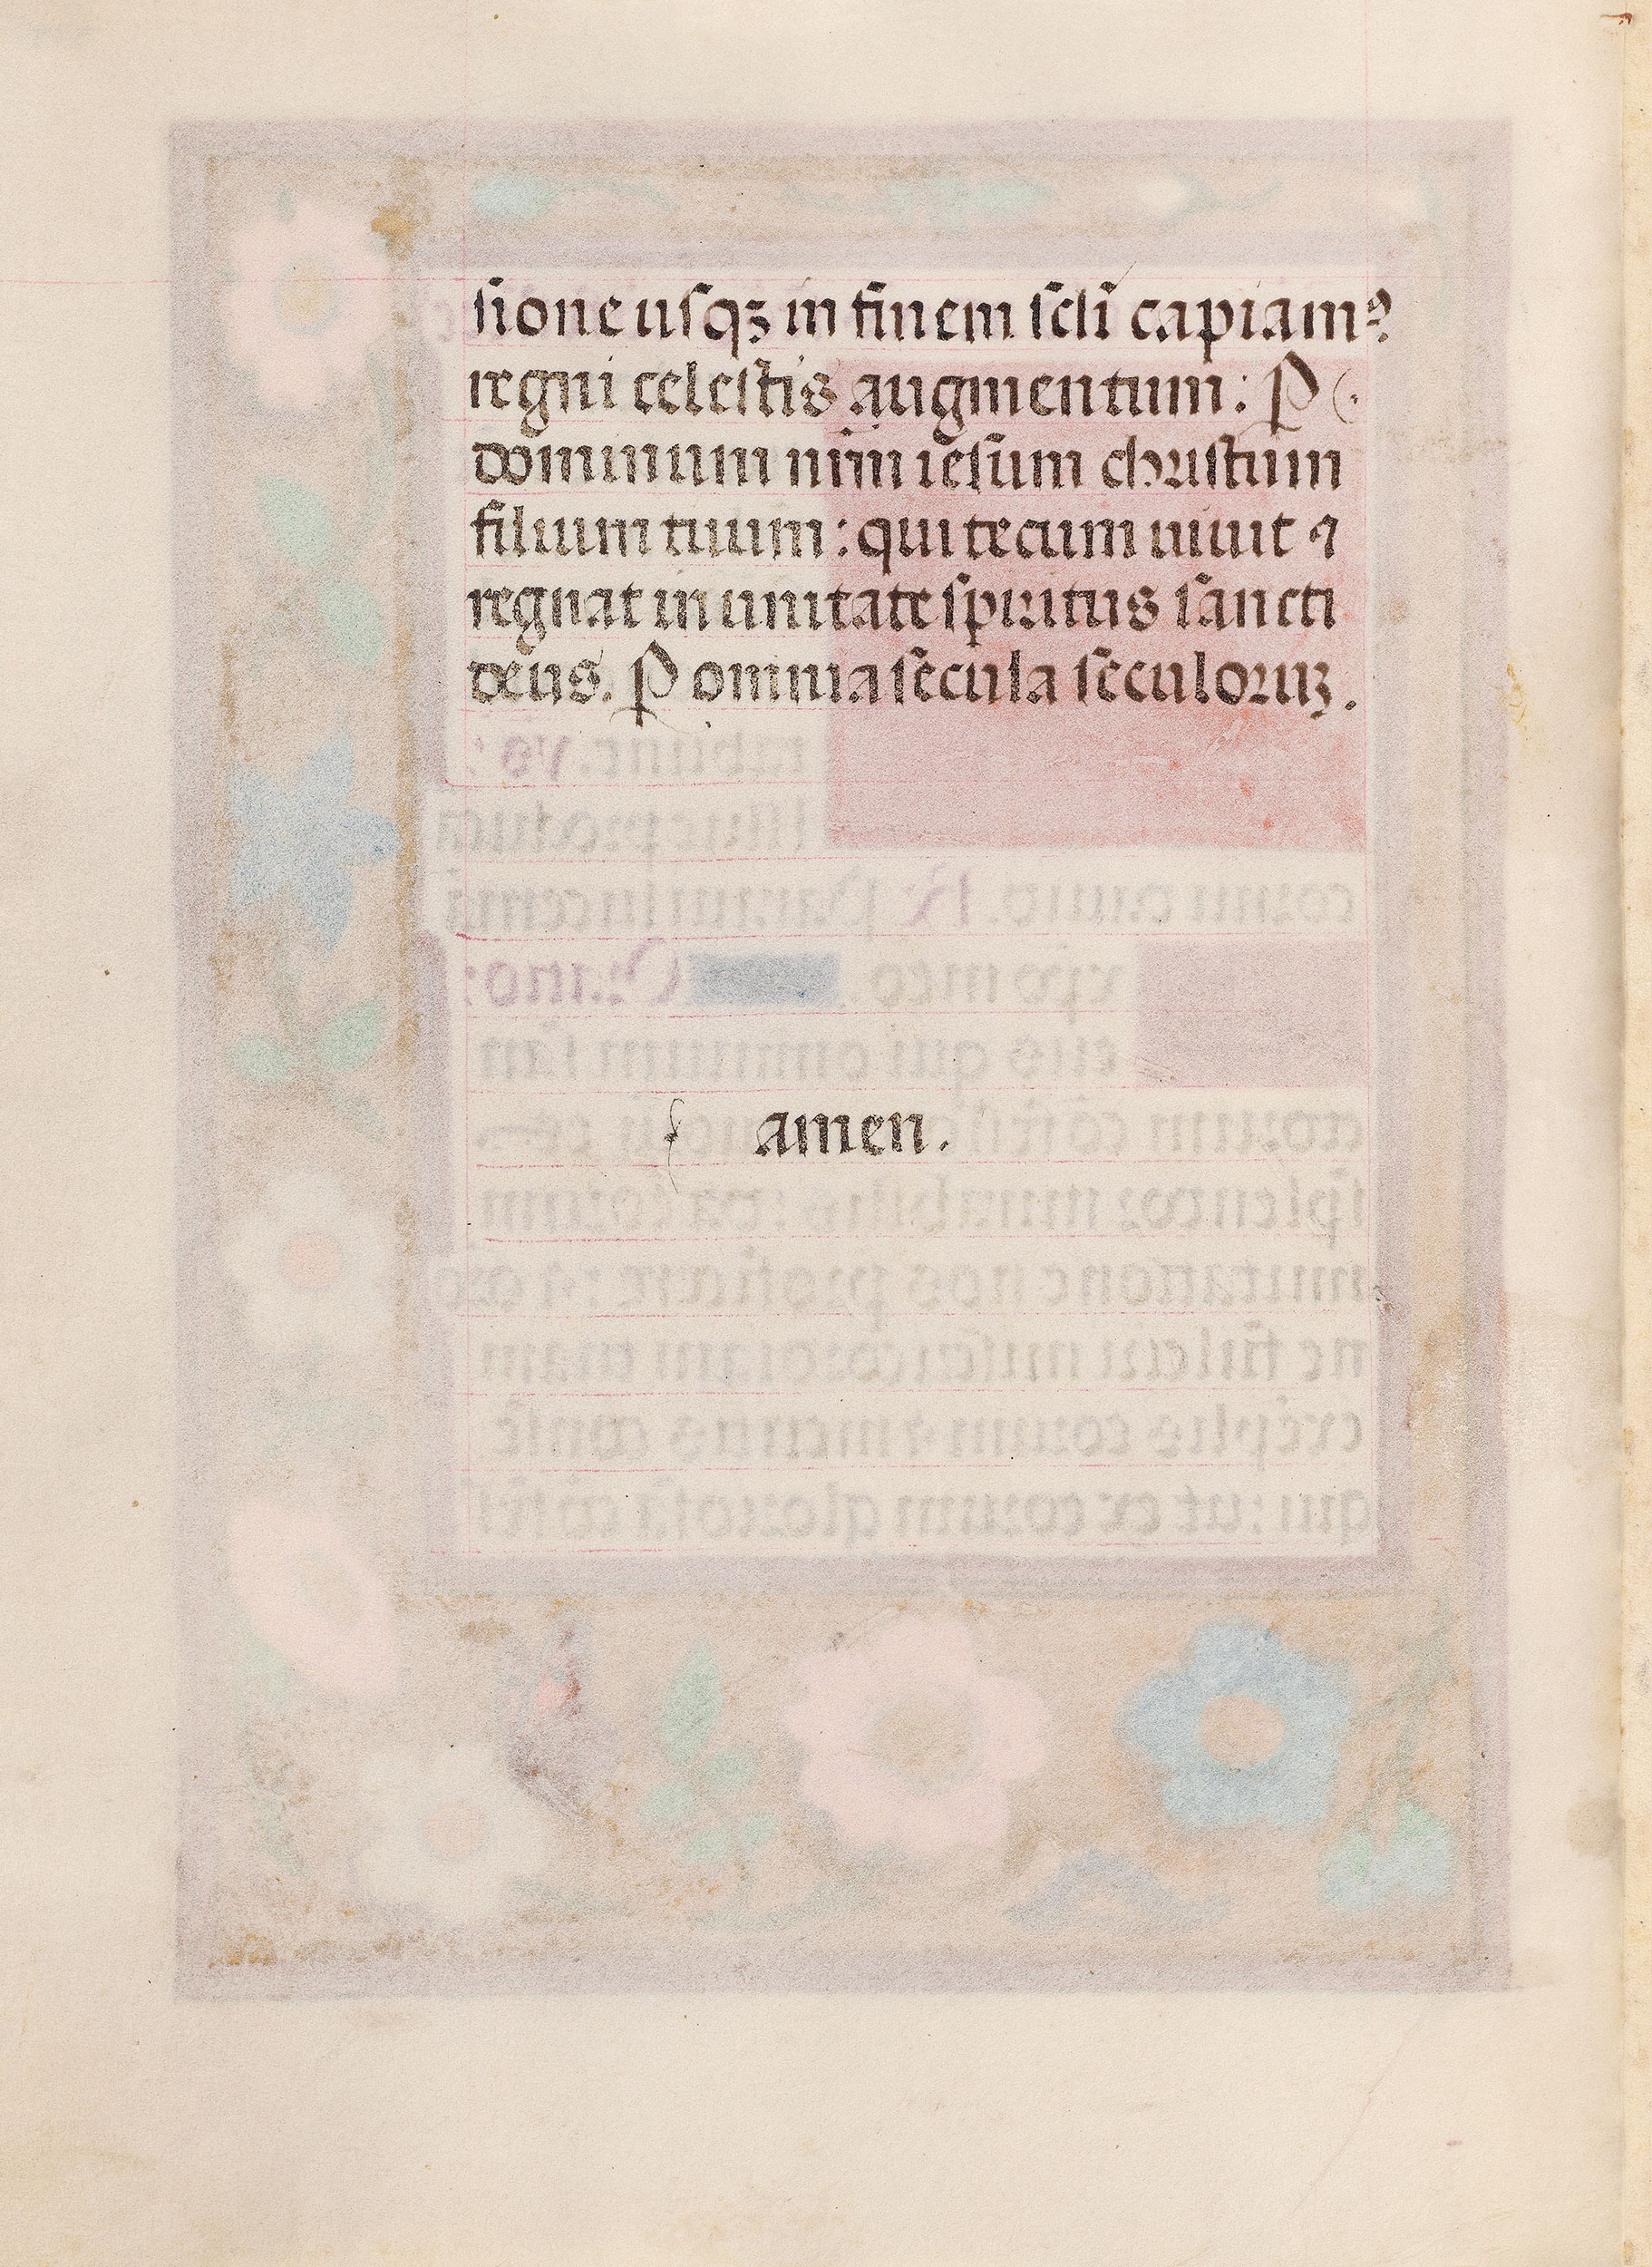 sione usqꝫ in finem scłi capiamꝰ
regni celestis augmentum: P(.
dominum nr̄m iesum christum
filium tuum: qui tecum uiuit ⁊
regnat in unitate spiritus sancti
deus. P omnia secula seculoruꝫ.
amen.